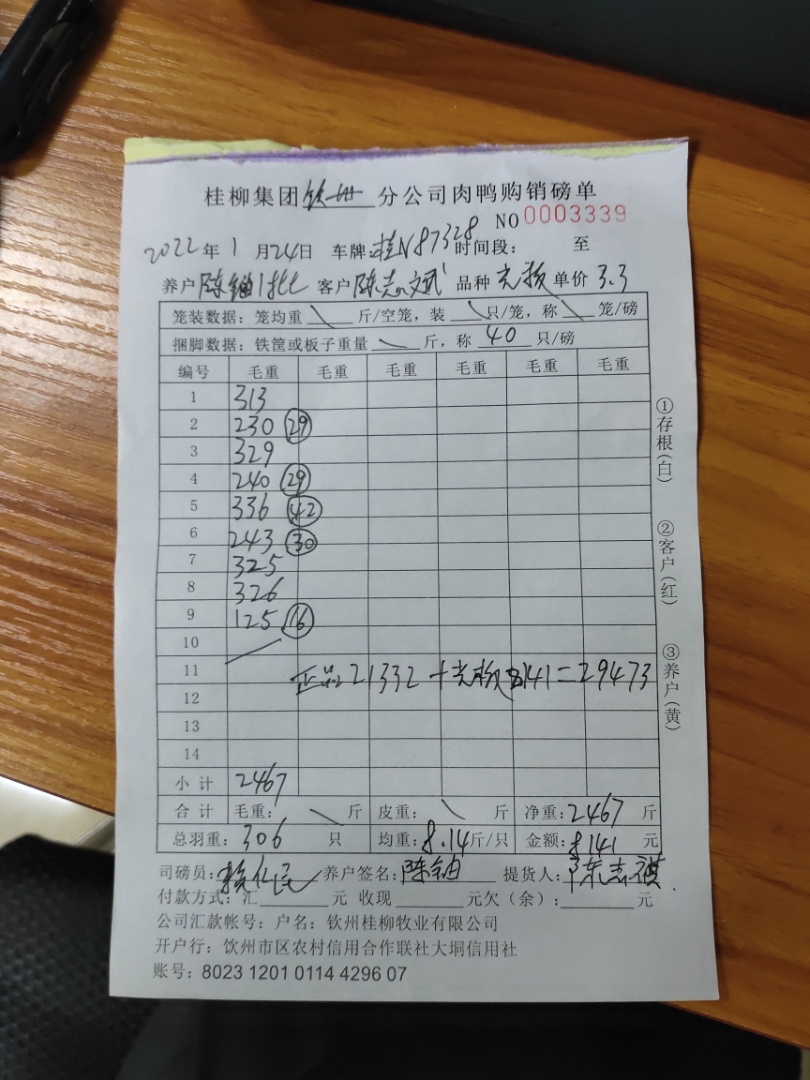 桂柳集团钦州分公司肉鸭购销磅单
NO 0003339
2022年1月24日 车牌:桂N87328时间段: 至
养户陈铀1批 客户陈志斌 品种 光板 单价 3.3
笼装数据:笼均重 \ 斤/空笼,装 \ 只/笼,称 \ 笼/磅
捆脚数据:铁筐或板子重量 \ 斤,称 40 只/磅
编号 毛重 毛重 毛重 毛重 毛重 毛重
1 313
2 230 29
3 329
4 240 29
5 336 42
6 243 30
7 325
8 326
9 125 16
10
11 正品21332+光板8141=29473
12
13
14
小计 2467
合计 毛重: \ 斤 皮重: \ 斤 净重:2467 斤
总羽重:306 只 均重:8.14斤/只 金额:8141 元
司磅员: 养户签名:陈铀 提货人:陈志
付款方式:汇 元 收现 元欠(余): 元
公司汇款帐号:户名:钦州桂柳牧业有限公司
开户行:钦州市区农村信用合作联社大垌信用社
账号:8023 1201 0114 4296 07
①存根(白) ②客户(红) ③养户(黄)